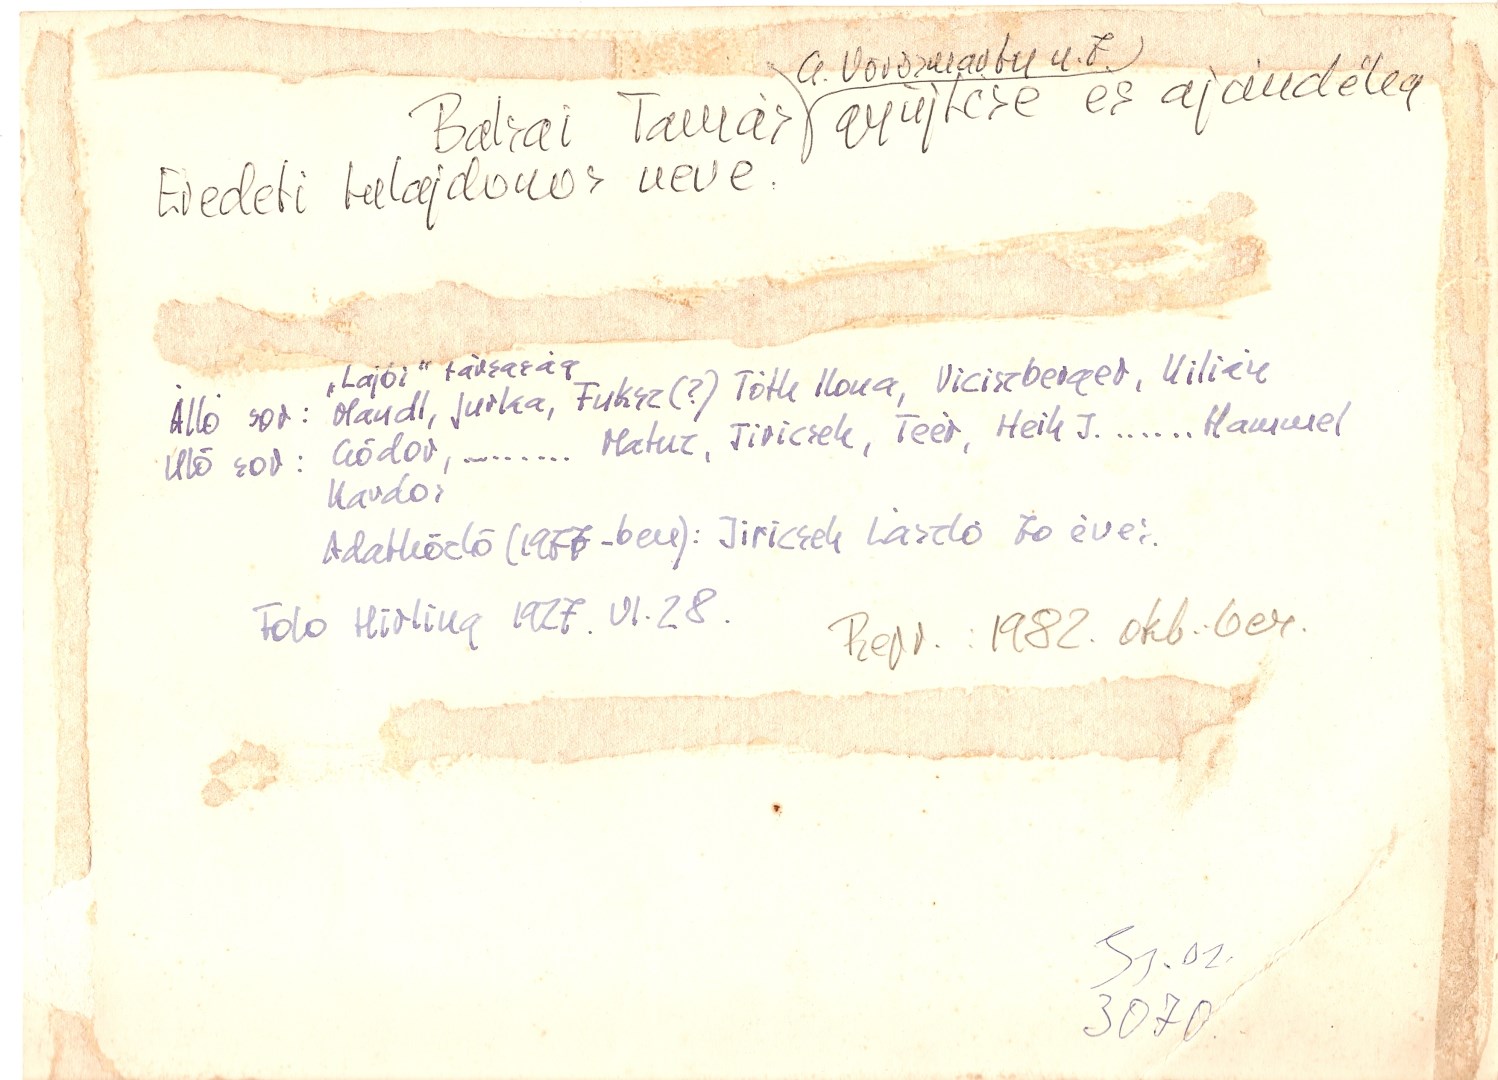 (Vörösmarty u. 7.)
Balsai Tamás gyűjtése és ajándéka
Eredeti tulajdonos neve.
„Lajói" társaság
Álló sor: Mandl, Jurka, Fuksz(?) Tóth Ilona, Viciszberger, Kilián
Ülő sor: Gódor, ......... Matuz, Jiricsek, Teér, Heik J. ....... Hammel
Kardos
Adatközlő (1977-ben): Jiricsek László 70 éves.
Foto Hirling 1927. VI. 28.
Repr.: 1982. okb.-ber.
3070